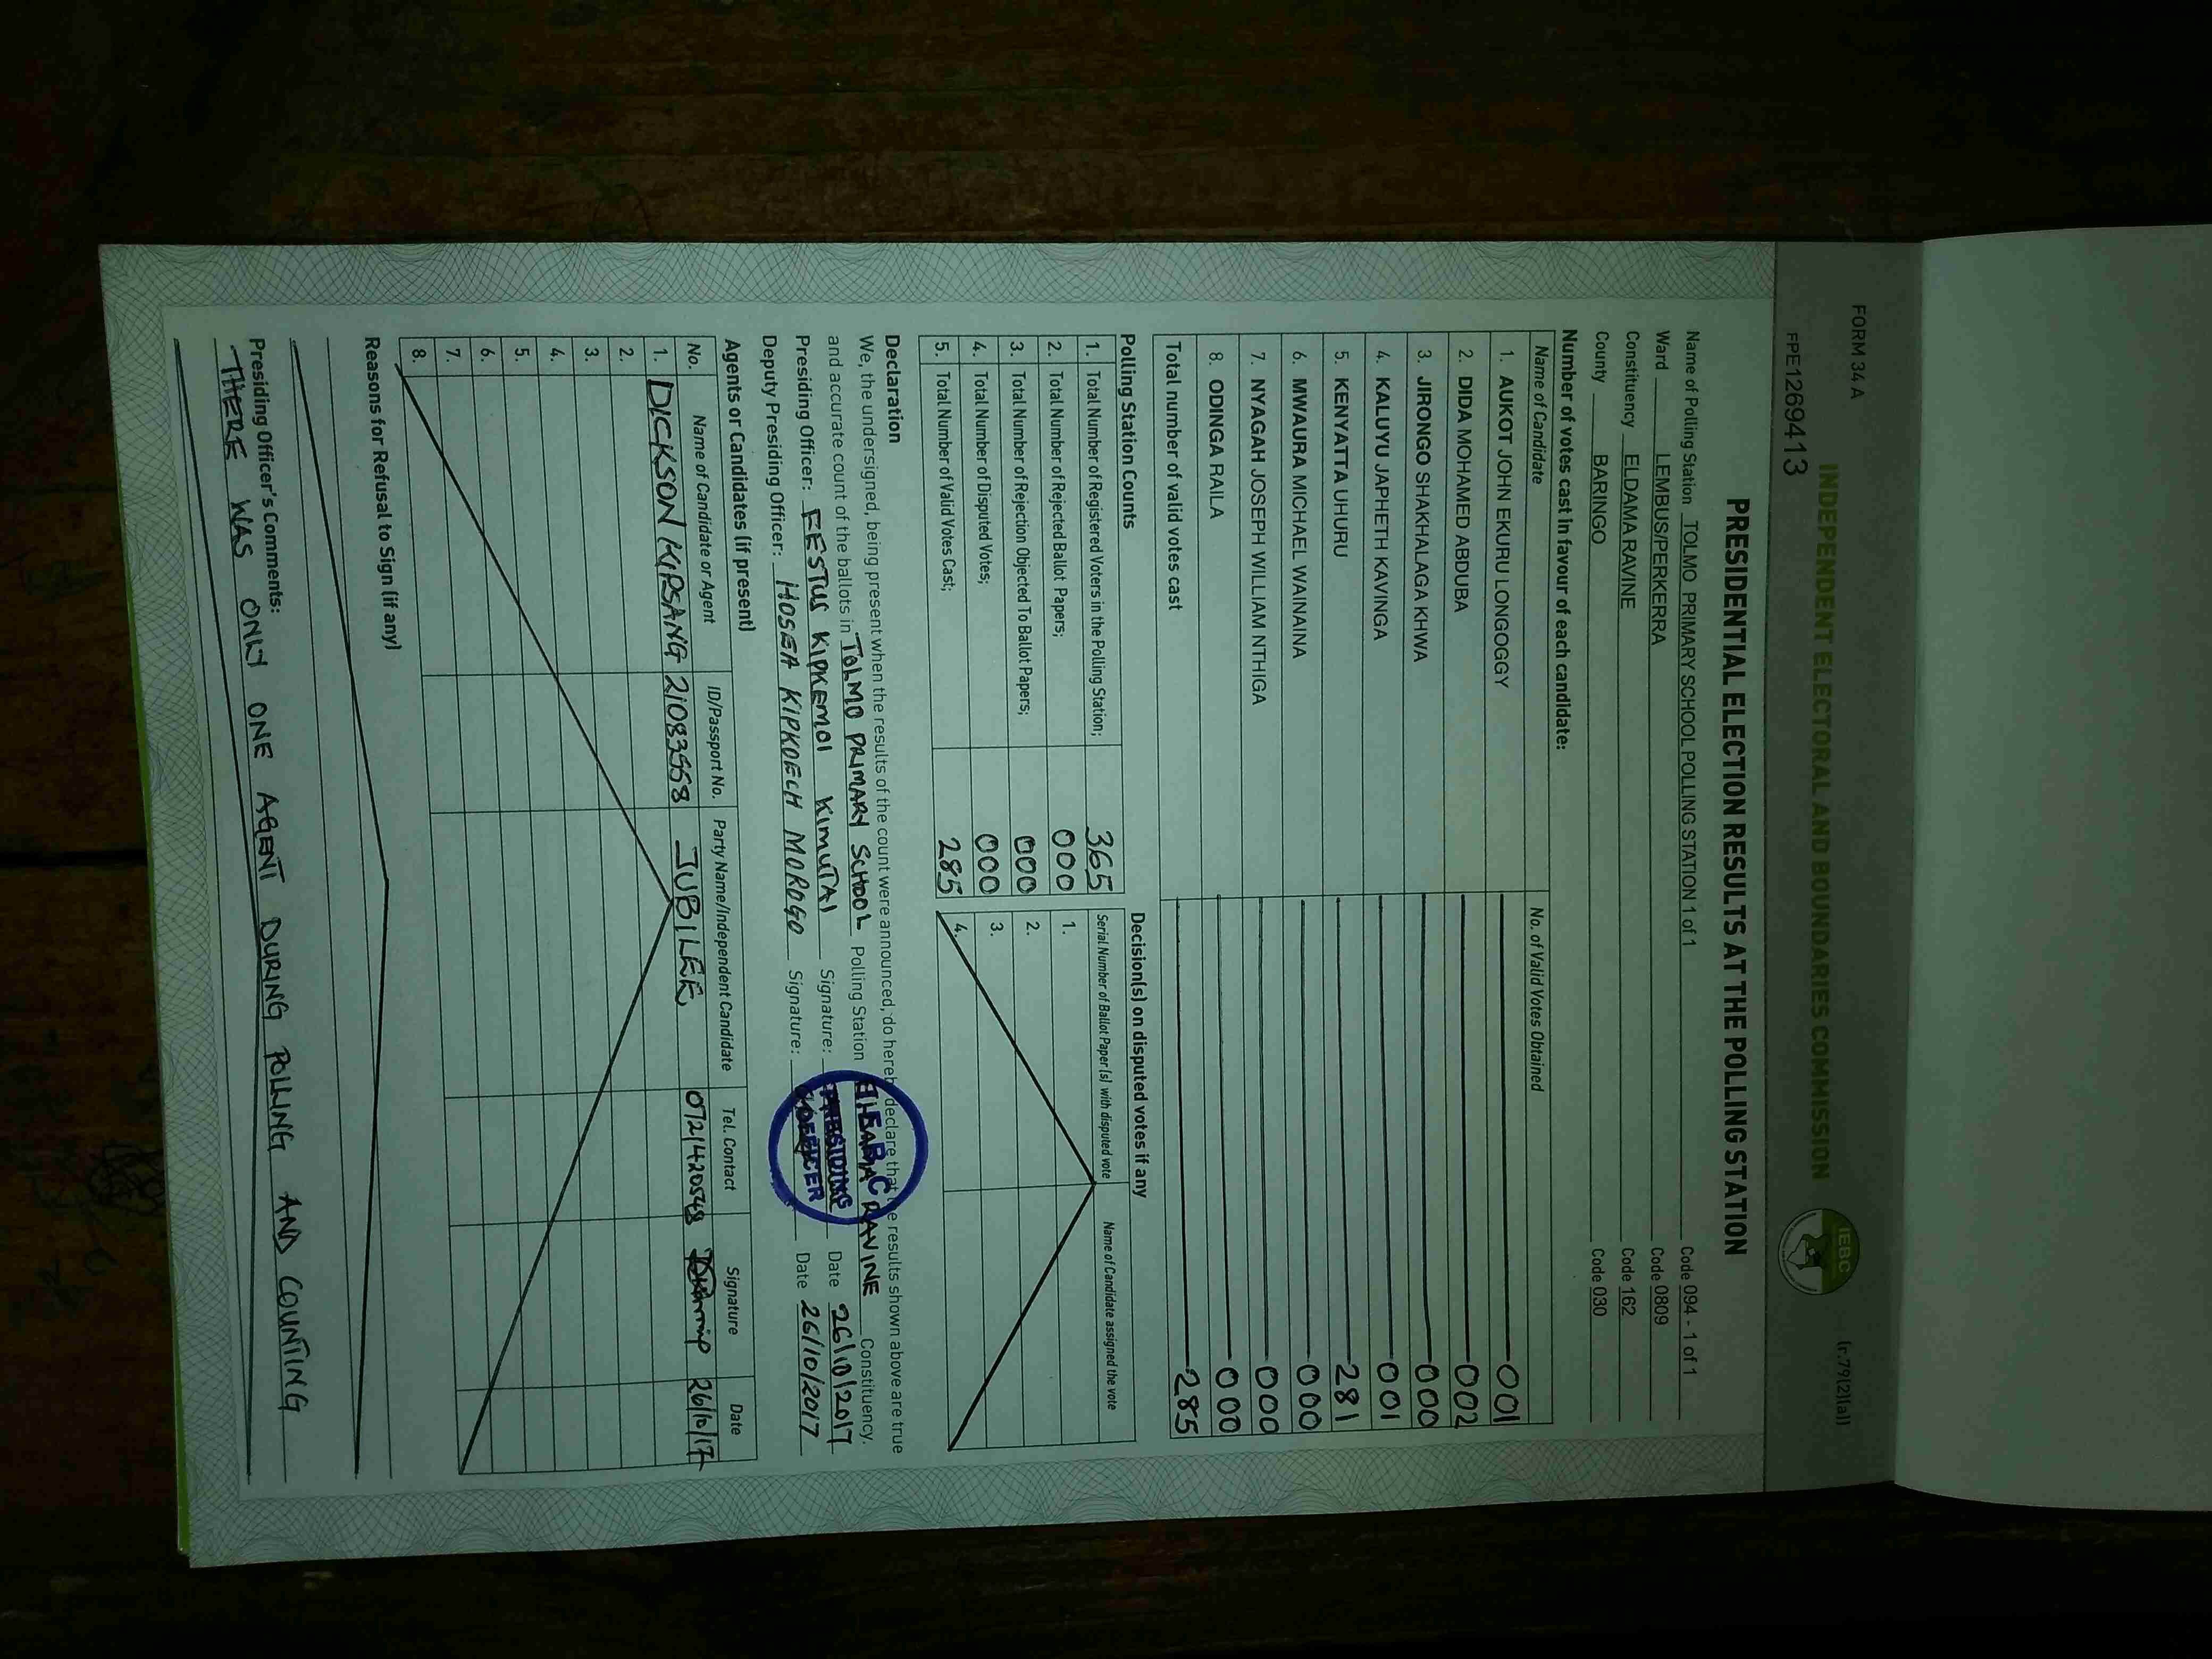 FORM 34 A
(r.79(2)(a))
INDEPENDENT ELECTORAL AND BOUNDARIES COMMISSION
IEBC
FPE1269413
PRESIDENTIAL ELECTION RESULTS AT THE POLLING STATION
Name of Polling Station TOLMO PRIMARY SCHOOL POLLING STATION 1 of 1 Code 094 - 1 of 1
Ward LEMBUS/PERKERRA Code 0809
Constituency ELDAMA RAVINE Code 162
County BARINGO Code 030
Number of votes cast in favour of each candidate:
Name of Candidate No. of Valid Votes Obtained
1. AUKOT JOHN EKURU LONGOGGY 001
2. DIDA MOHAMED ABDUBA 002
3. JIRONGO SHAKHALAGA KHWA 000
4. KALUYU JAPHETH KAVINGA 001
5. KENYATTA UHURU 281
6. MWAURA MICHAEL WAINAINA 000
7. NYAGAH JOSEPH WILLIAM NTHIGA 000
8. ODINGA RAILA 000
Total number of valid votes cast 285
Polling Station Counts
1. Total Number of Registered Voters in the Polling Station; 365
2. Total Number of Rejected Ballot Papers; 000
3. Total Number of Rejection Objected To Ballot Papers; 000
4. Total Number of Disputed Votes; 000
5. Total Number of Valid Votes Cast; 285
Decision(s) on disputed votes if any
Serial Number of Ballot Paper(s) with disputed vote Name of Candidate assigned the vote
1.
2.
3.
4.
Declaration
We, the undersigned, being present when the results of the count were announced, do hereby declare that the results shown above are true
and accurate count of the ballots in TOLMO PRIMARY SCHOOL Polling Station ELDAMA RAVINE Constituency.
Presiding Officer: FESTUS KIPKEMOI KIMUTAI Signature: Date 26/10/2017
Deputy Presiding Officer: HOSEA KIPKOECH MOROGO Signature: Date 26/10/2017
I.E.B.C
PRESIDING
OFFICER
Agents or Candidates (if present)
No. Name of Candidate or Agent ID/Passport No. Party Name/Independent Candidate Tel. Contact Signature Date
1. DICKSON KIPSANG 21083558 JUBILEE 0721420548 26/10/17
2.
3.
4.
5.
6.
7.
8.
Reasons for Refusal to Sign (if any)
Presiding Officer's Comments:
THERE WAS ONLY ONE AGENT DURING POLLING AND COUNTING